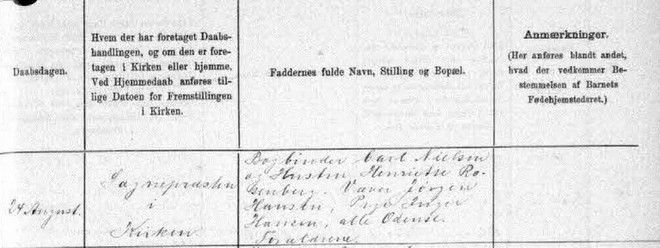 Daabsdagen.
Hvem der har foretaget Daabs-
handlingen, og om den er fore-
tagen i Kirken eller hjemme.
Ved Hjemmedaab anføres til-
lige Datoen for Fremstillingen
i Kirken.
Faddernes fulde Navn, Stilling og Bopæl.
Anmærkninger.
(Her anføres blandt andet,
hvad der vedkommer Be-
stemmelsen af Barnets
Fødehjemstedsret.)
24 August.
Sognepræsten
i
Kirken.
Bogbinder Carl Nielsen
og Hustru Henriette Ro-
senberg. Væver Jørgen
Hansen, Pige Inger
Hansen, alle Odense.
Forældrene.